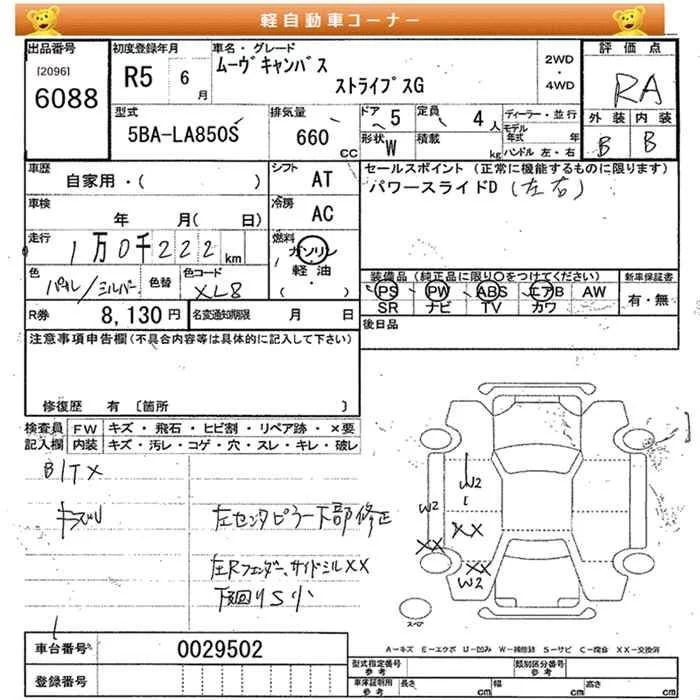 軽自動車コーナー
出品番号
[2096]
6088
初度登録年月
R5 6月
車名・グレード
ムーヴキャンバス
ストライプスG
2WD
・
4WD
評価点
RA
外装 内装
B B
型式
5BA-LA850S
排気量
660
CC
ドア 5
定員 4人
形状 W
積載 kg
ディーラー・並行
モデル年式 年
ハンドル 左・右
車歴
自家用・( )
シフト
AT
セールスポイント (正常に機能するものに限ります)
パワースライドD (左右)
車検
年 月( 日)
冷房
AC
走行
1万0千222km
燃料
ガソリン
軽油
( ・ )
色
パール/シルバー
色替
色コード
XL8
装備品 (純正品に限り○をつけてください)
PS PW ABS エアB AW
SR ナビ TV カワ
新車保証書
有・無
R券
8,130円
名変通知期限 月 日
後日品
注意事項申告欄(不具合内容等は具体的に記入して下さい)
修復歴 有 〔箇所 〕
検査員記入欄
FW キズ・飛石・ヒビ割・リペア跡・×要
内装 キズ・汚レ・コゲ・穴・スレ・キレ・破レ
BITX
キズU
左センタピラー下部修正
左Rフェンダー、サイドシルXX
下回りS小
W2
W2
XX
XX
XX
W2
スペア
A=キズ E=エクボ U=凹み W=補修跡 S=サビ C=腐食 XX=交換済
車台番号
0029502
登録番号
型式指定番号
参考
類別区分番号
参考
車庫証明用
参考
長さ cm
幅 cm
高さ cm